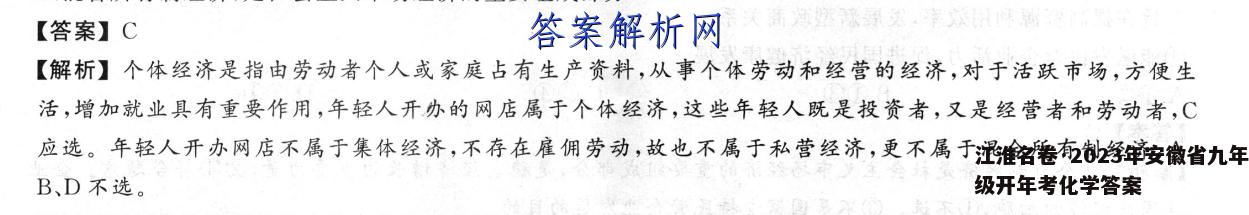 【答案】C
答案解析网
【解析】个体经济是指由劳动者个人或家庭占有生产资料,从事个体劳动和经营的经济,对于活跃市场,方便生
活,增加就业具有重要作用,年轻人开办的网店属于个体经济,这些年轻人既是投资者,又是经营者和劳动者,C
应选。年轻人开办网店不属于集体经济,不存在雇佣劳动,故也不属于私营经济,更不属于
江淮名卷·2023年安徽省九年
级开年考化学答案
B、D不选。